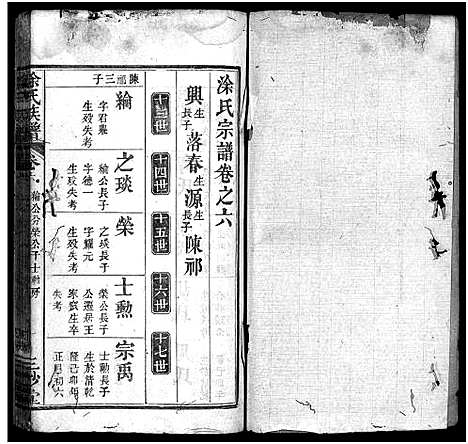 涂氏宗譜卷之六
興生長子落春生源生長子陳祁
十三世
十四世
十五世
十六世
十七世
陳祁三子
綸
字君
生歿失考
之琰
綸公長子
字德一
生歿失考
榮
之琰長子
字耀元
生歿失考
士勲
榮公長子
公遷居王
家窩生卒
失考
宗禹
士勲長子
生於清乾
隆己卯年
正月初六
涂氏族譜
卷六
綸公分榮公子士勲房
三